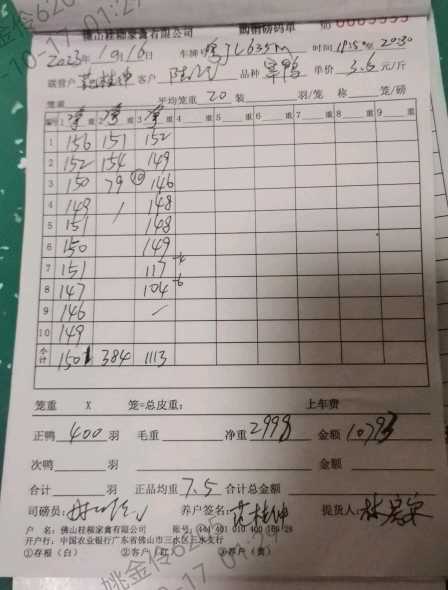 佛山桂柳家禽有限公司 购销磅码单
2023年10月16日 车牌号 粤JL635M 时间 1915 2030
联营户 范桂坤 客户 品种 单价 3.6 元/斤
笼重 平均笼重 20 装 羽/笼 称 笼/磅
编号 1 重 2 重 3 重 4 重 5 重 6 重 7 重 8 重 9 重
1 156 151 152
2 152 154 149
3 150 79 ⑩ 146
4 149 / 148
5 151 148
6 150 149
7 151 117
8 147 104
9 146
10 149
小计 1501 384 1113
笼重 X 笼=总皮重: 上车费
正鸭 400 羽 毛重 净重 2998 金额 10793
次鸭 羽 金额
合计 羽 正品均重 7.5 合计总金额
司磅员: 养户签名: 范桂坤 提货人:
户 名: 佛山桂柳家禽有限公司 账号:
开户行: 中国农业银行广东省佛山市三水区三水支行
①存根(白) ②客户(红) ③养户(黄)
姚金伶620
-10-17 01:27